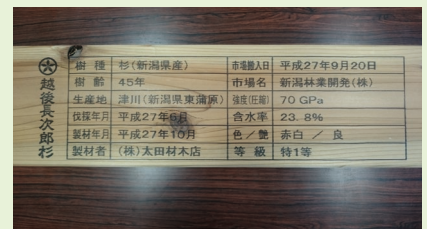 越後長次郎杉
樹種 杉(新潟県産) 市場搬入日 平成27年9月20日
樹齢 45年 市場名 新潟林業開発(株)
生産地 津川(新潟県東蒲原) 強度(圧縮) 70 GPa
伐採年月 平成27年6月 含水率 23.8%
製材年月 平成27年10月 色/艶 赤白 / 良
製材者 (株)太田材木店 等級 特1等